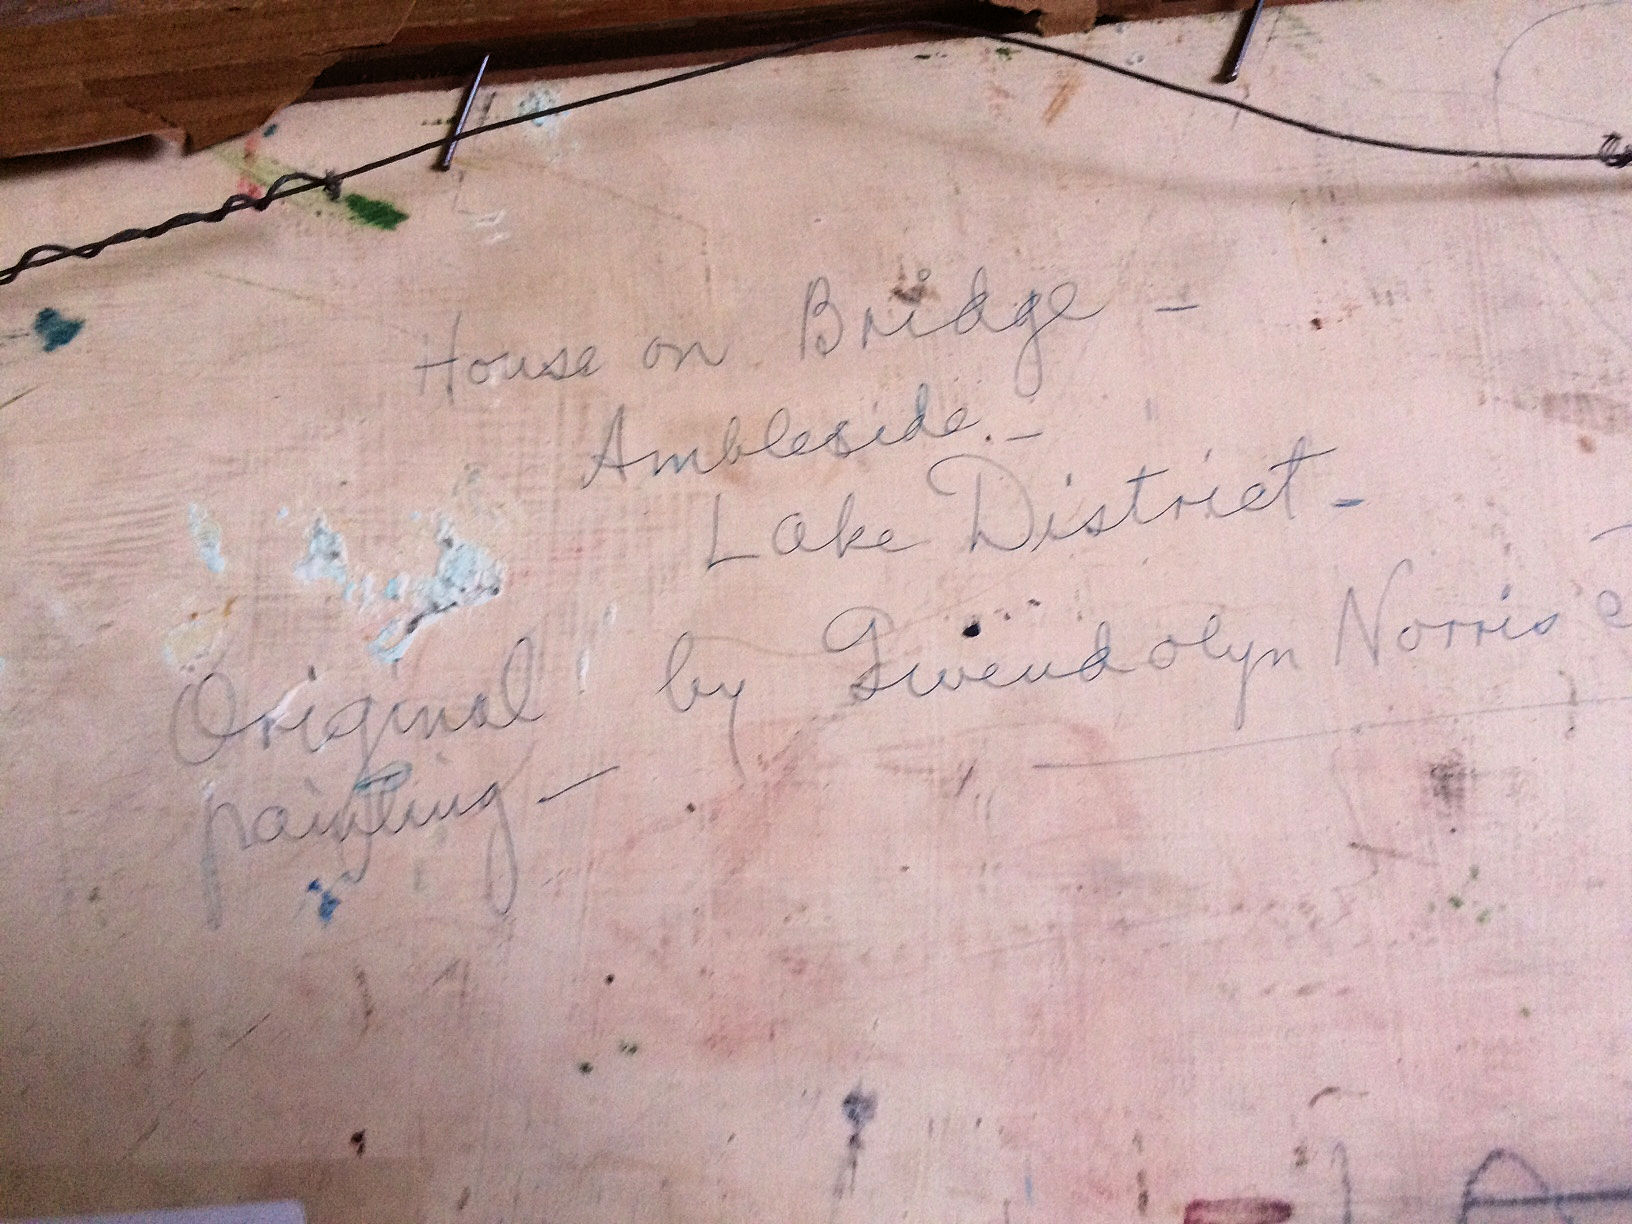 House on Bridge –
Ambleside. –
Lake District –
Original by Gwendolyn Norris
painting –